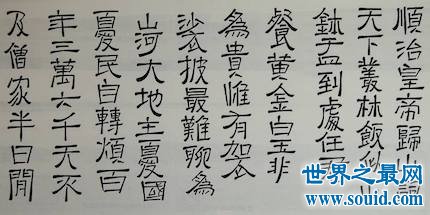 順治皇帝歸山詞
天下叢林飯似山
鉢盂到處任君
餐黃金白玉非
為貴惟有袈
裟披最難朕為
山河大地主憂國
憂民自轉煩百
年三萬六千天不
及僧家半日閒
世界之最网
www.souid.com